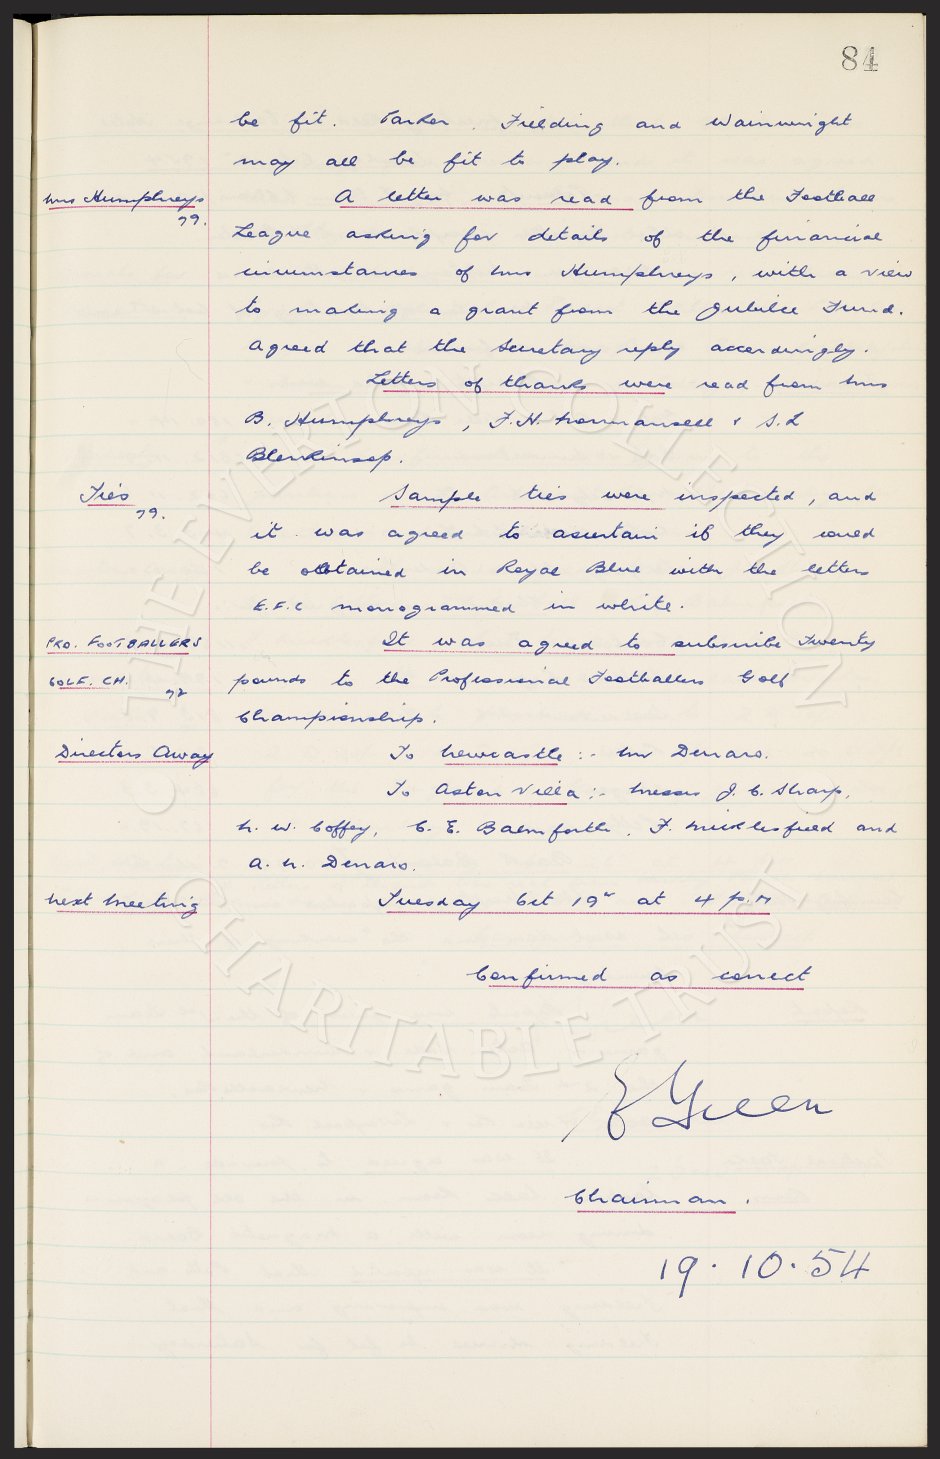 84
be fit. Parker, Fielding and Wainwright
may all be fit to play.
Mrs Humphreys
79.
A letter was read from the Football
League asking for details of the financial
circumstances of Mrs Humphreys, with a view
to making a grant from the Jubilee Fund.
Agreed that the Secretary reply accordingly.
Letters of thanks were read from Mrs
B. Humphreys, F.H. Normansell & S.L
Blenkinsop.
Ties
79.
Sample ties were inspected, and
it was agreed to ascertain if they could
be obtained in Royal Blue with the letters
E.F.C monogrammed in white.
PRO. FOOTBALLERS
GOLF. CH.
72
It was agreed to subscribe Twenty
pounds to the Professional Footballers Golf
Championship.
Directors Away
To Newcastle :- Mr Denaro.
To Aston Villa :- Messrs J. C. Sharp,
N. W. Coffey, C. E. Balmforth, F. Micklesfield and
A. N. Denaro.
Next Meeting
Tuesday Oct 19th at 4 p.m
Confirmed as correct
E Green
Chairman.
19.10.54
THE EVERTON COLLECTION
CHARITABLE TRUST